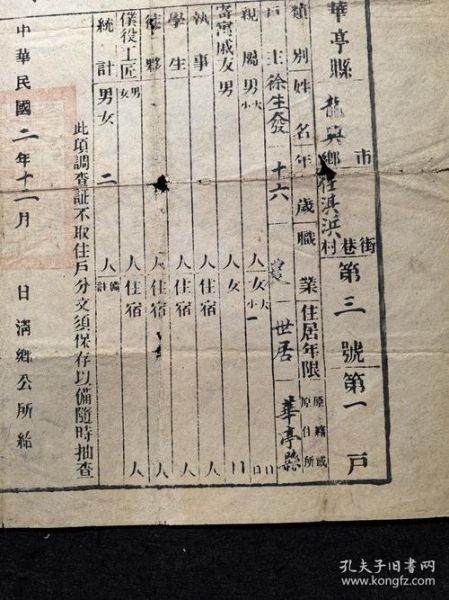 華亭縣 龍興鄉 市 街巷村 第三號第一戶
類別 姓名 年歲 職業 住居年限 原籍或原住所
戶主 徐生發 十六 農 世居 華亭縣
親屬 男 大小 人 女 大小 一 口口
寄寓戚友 男 人 女 口
執事 人 住宿 人
學生 人 住宿 人
徒夥 人 住宿 人
僕役工匠 男女 人 住宿 人
統計 男女 二 人 備計
此項調查証不取住戶分文須保存以備隨時抽查
中華民國二年十二月 日 清鄉公所給
孔夫子旧书网
www.kongfz.com